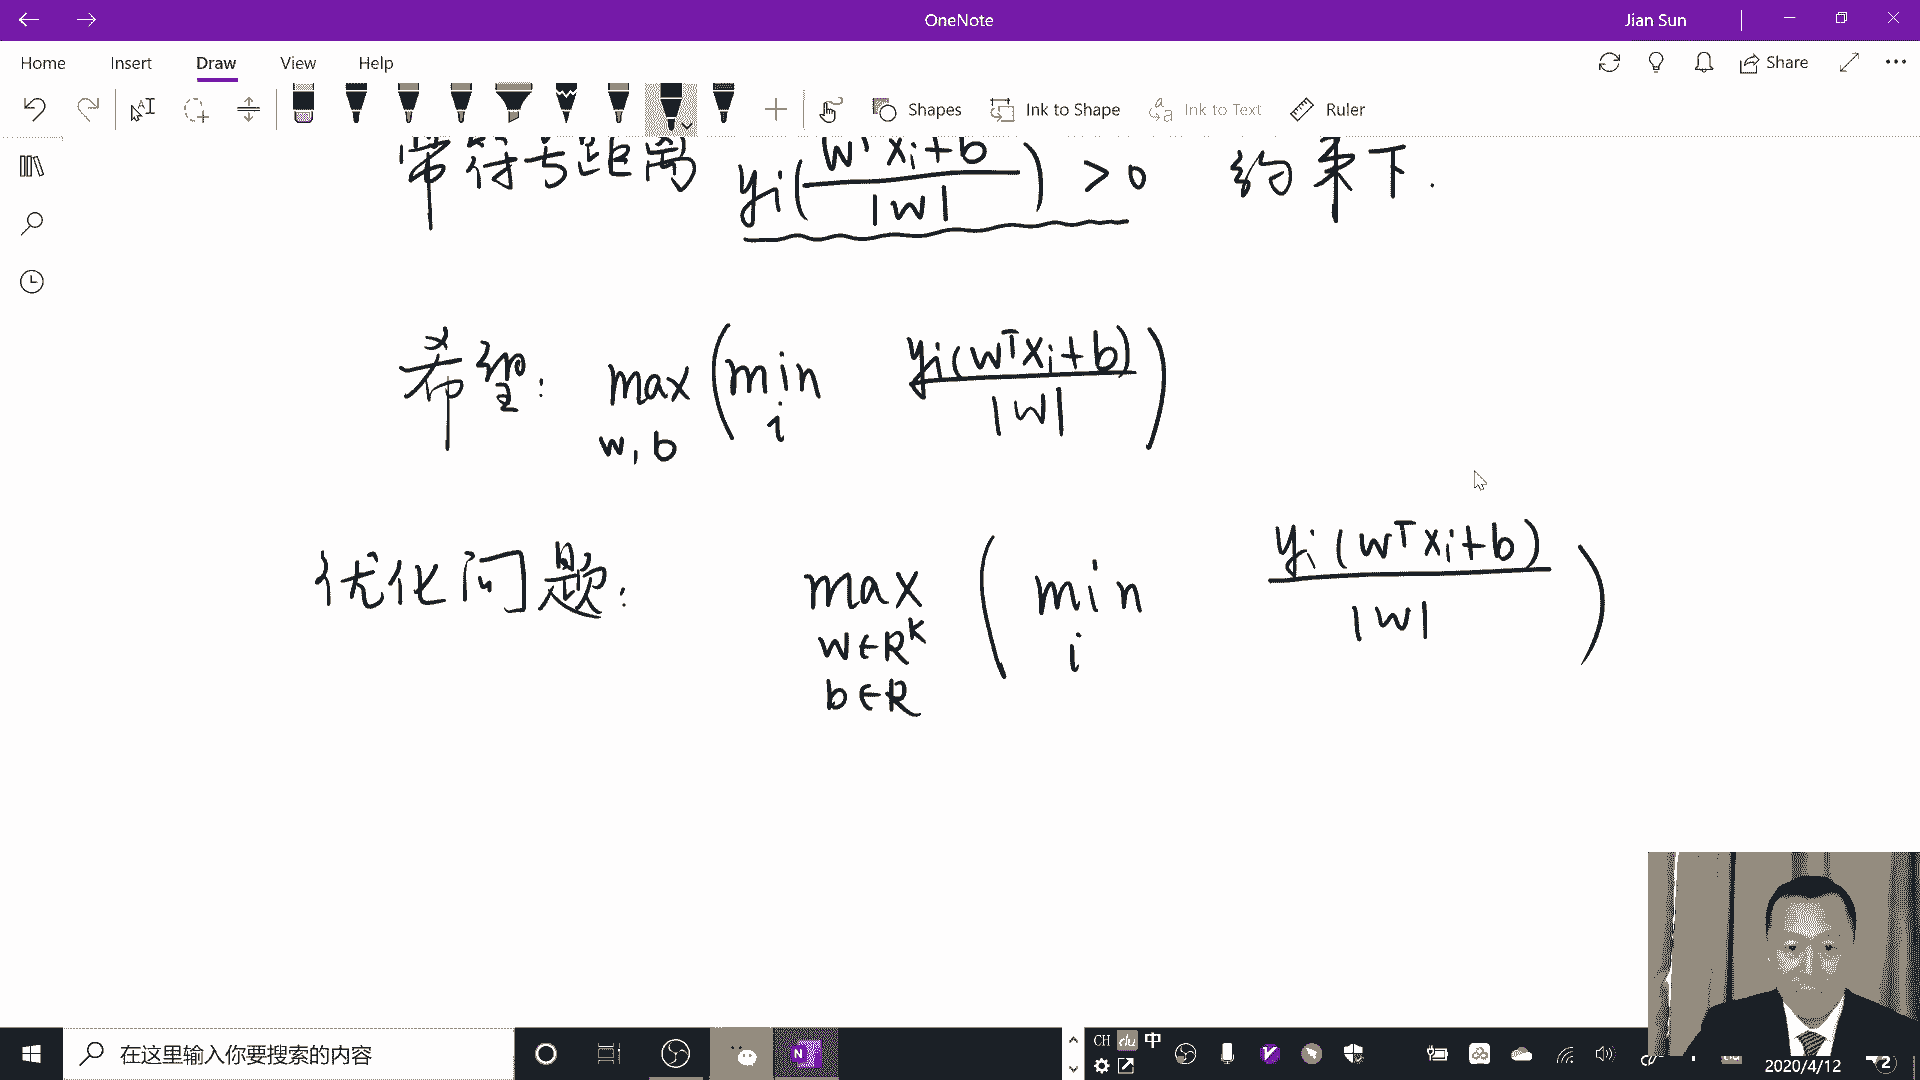 OneNote
Jian Sun
Home Insert Draw View Help
Share
Shapes Ink to Shape Ink to Text Ruler
带符号距离 yi(wᵀxi+b / |w|) > 0 约束下.
希望: max w, b (min i yi(wᵀxi+b) / |w|)
优化问题: max w∈Rᴷ b∈R (min i yi(wᵀxi+b) / |w|)
在这里输入你要搜索的内容
CH du 中
2020/4/12
2